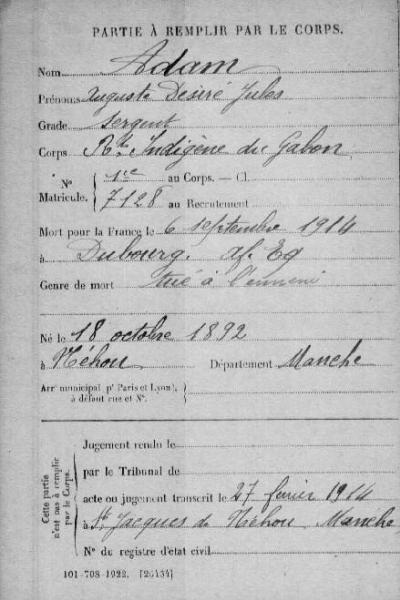 PARTIE À REMPLIR PAR LE CORPS.
Nom Adam
Prénoms Auguste Désiré Jules
Grade Sergent
Corps Rt. Indigène du Gabon
N° Matricule. { 1re au Corps. — Cl.
7128 au Recrutement
Mort pour la France le 6 septembre 1914
à Dubourg. Af. Eq
Genre de mort tué à l'ennemi
Né le 18 octobre 1892
à Néhou Département Manche
Arrt municipal (pr Paris et Lyon),
à défaut rue et N°.
Cette partie
n'est pas à remplir
par le Corps.
Jugement rendu le
par le Tribunal de
acte ou jugement transcrit le 27 février 1914
à St Jacques de Néhou, Manche,
N° du registre d'état civil
101-708-1922. [26434]